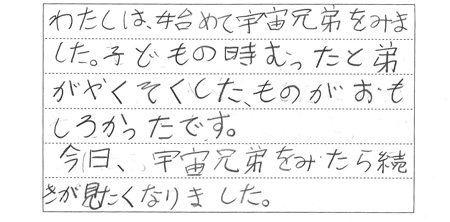 わたしは、始めて宇宙兄弟をみま
した。子どもの時むったと弟
がやくそくした、ものがおも
しろかったです。
今日、宇宙兄弟をみたら続
きが見たくなりました。